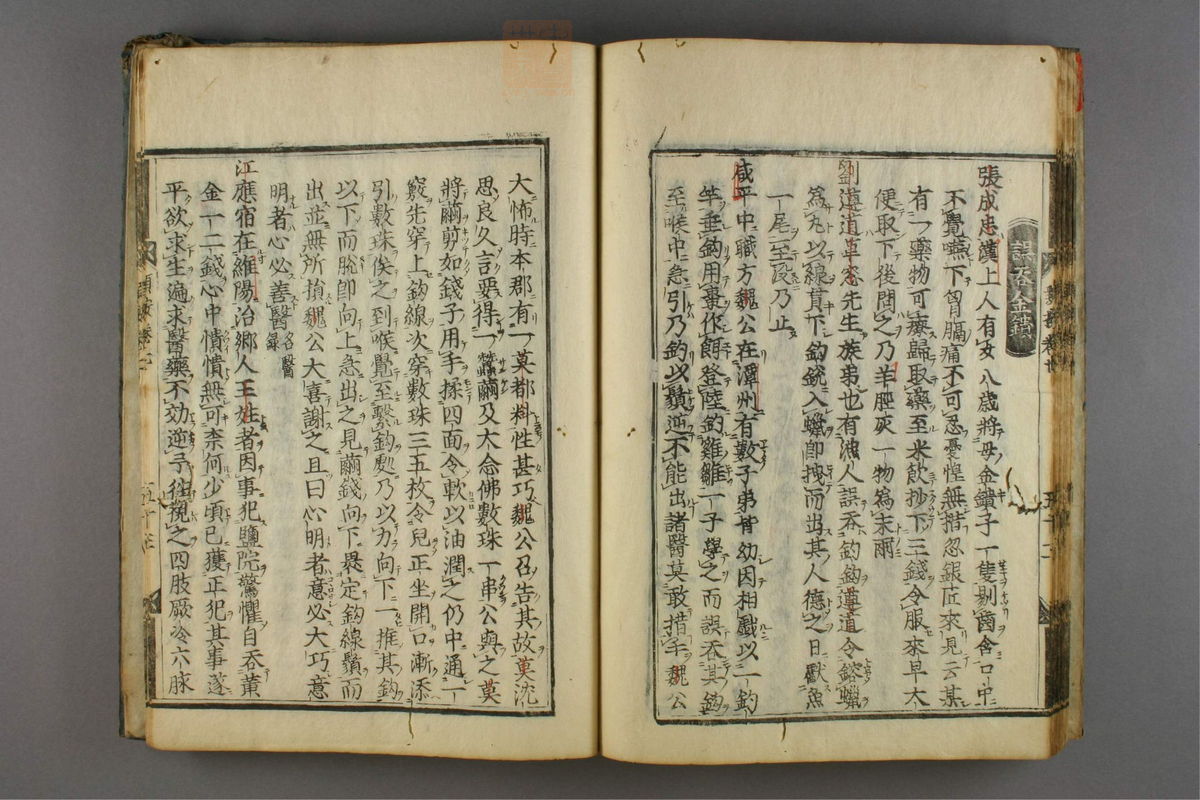 誤吞金鐵
張成忠漢上人有女八歲將母金鐀子一隻剔齒含口中
不覺嚥下胷膈痛不可忍憂惶無措忽銀匠來見云某
有一藥物可療歸取藥至米飲抄下三錢令服來早大
便取下後問之乃羊脛灰一物為末爾
劉遵道草窓先生族弟也有漁人誤吞釣鈎遵道令鎔蠟
為丸以線貫下鈎銳入蠟即拽而出其人德之日獻魚
一尾至殁乃止
咸平中職方魏公在潭州有數子弟皆幼因相戲以一釣
竿垂鈎用棗作餌登陸釣雞雛一子學之而誤吞其鈎
至喉中急引乃釣以鬚逆不能出諸醫莫敢措手魏公
大怖時本郡有一莫都料性甚巧魏公召告其故莫沈
思良久言要得一蠶繭及大念佛數珠一串公與之莫
將繭剪如錢子用手揉四面令軟以油潤之仍中通一
竅先穿上鈎線次穿數珠三五枚令兒正坐開口漸添
引數珠俟之到喉覺至繫鈎處乃以力向下一推其鈎
以下而脫卽向上急出之見繭錢向下裹定鈎線鬚而
出並無所損魏公大喜謝之且曰心明者意必大巧意
明者心必善醫 名醫錄
江應宿在維陽治鄉人王姓者因事犯鹽院驚懼自吞黃
金一二錢心中憒憒無可柰何少頃已獲正犯其事遂
平欲求生遍求醫藥不効逆予徃視之四肢厥冷六脉